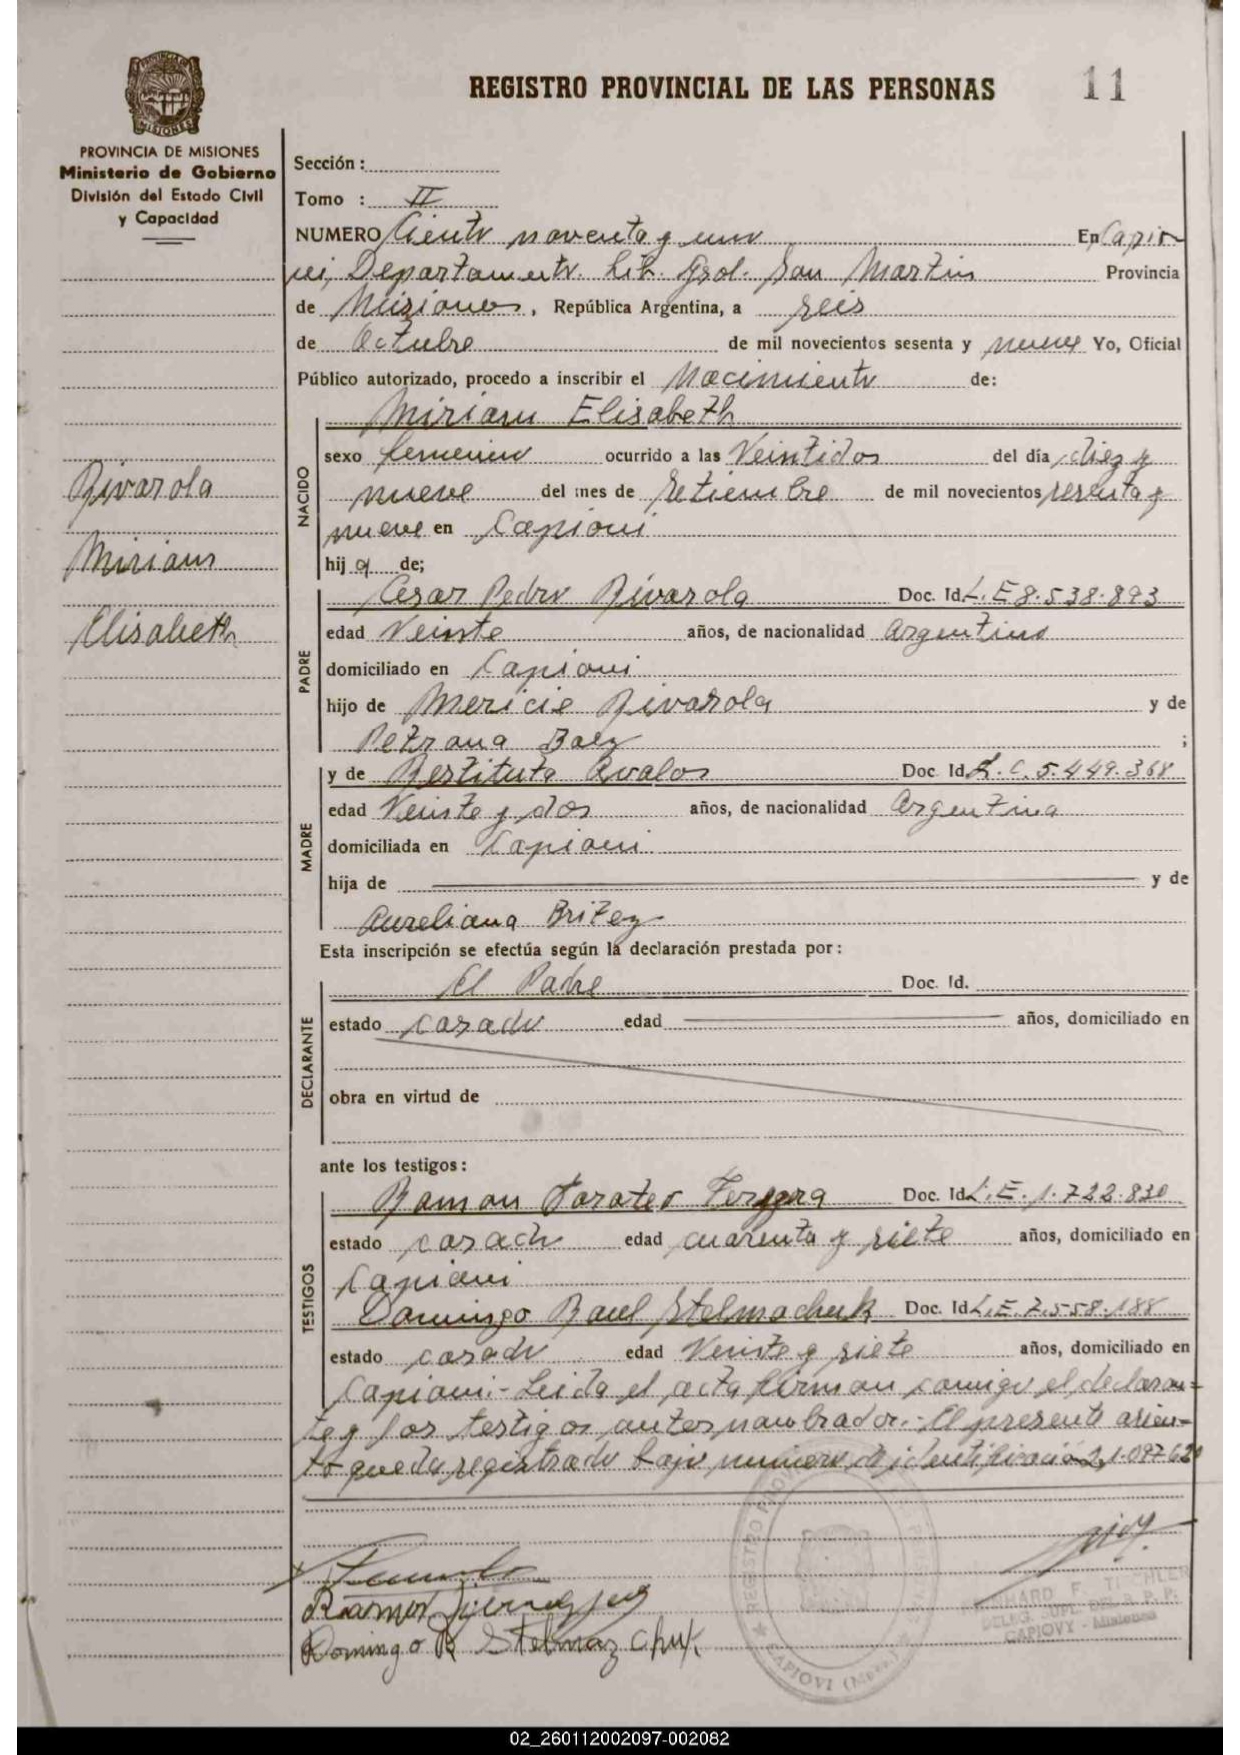 REGISTRO PROVINCIAL DE LAS PERSONAS 11
PROVINCIA DE MISIONES
Ministerio de Gobierno
División del Estado Civil
y Capacidad
Sección :
Tomo : II
NUMERO Ciento noventa y uno En Capio-
vi, Departamento. Lib. Gral. San Martin Provincia
de Misiones, República Argentina, a seis
de Octubre de mil novecientos sesenta y nueve Yo, Oficial
Público autorizado, procedo a inscribir el Nacimiento de:
Miriam Elisabeth
NACIDO
sexo femenino ocurrido a las Veintidos del día diez y
nueve del mes de setiembre de mil novecientos sesenta y
nueve en Capiovi
hij a de;
Rivarola
Miriam
Elisabeth
PADRE
Cesar Pedro Rivarola Doc. Id. L.E 8.538.893
edad Veinte años, de nacionalidad Argentino
domiciliado en Capiovi
hijo de Mericie Rivarola y de
Petrona Baez ;
MADRE
y de Restituta Avalos Doc. Id. L.C. 5.449.368
edad Veinte y dos años, de nacionalidad Argentina
domiciliada en Capiovi
hija de y de
Aureliana Britez
Esta inscripción se efectúa según la declaración prestada por:
DECLARANTE
El Padre Doc. Id.
estado casado edad años, domiciliado en
obra en virtud de
ante los testigos:
TESTIGOS
Ramon Doc. Id. L.E. 1.722.830
estado casado edad cuarenta y siete años, domiciliado en
Capiovi
Domingo Raul Stelmachuk Doc. Id. L.E. 7.558.188
estado casado edad Veinte y siete años, domiciliado en
Capiovi.- Leida el acta firman conmigo el declaran=
te y los testigos antes nombrados.- El presente asien-
to queda registrado bajo numero de identificación 21.097.620
Domingo R Stelmaz chuk
REGISTRO PROVINCIAL
CAPIOVI
F.
DELEG. SUPL. DEL R. P. P.
CAPIOVY - Misiones
02_260112002097-002082